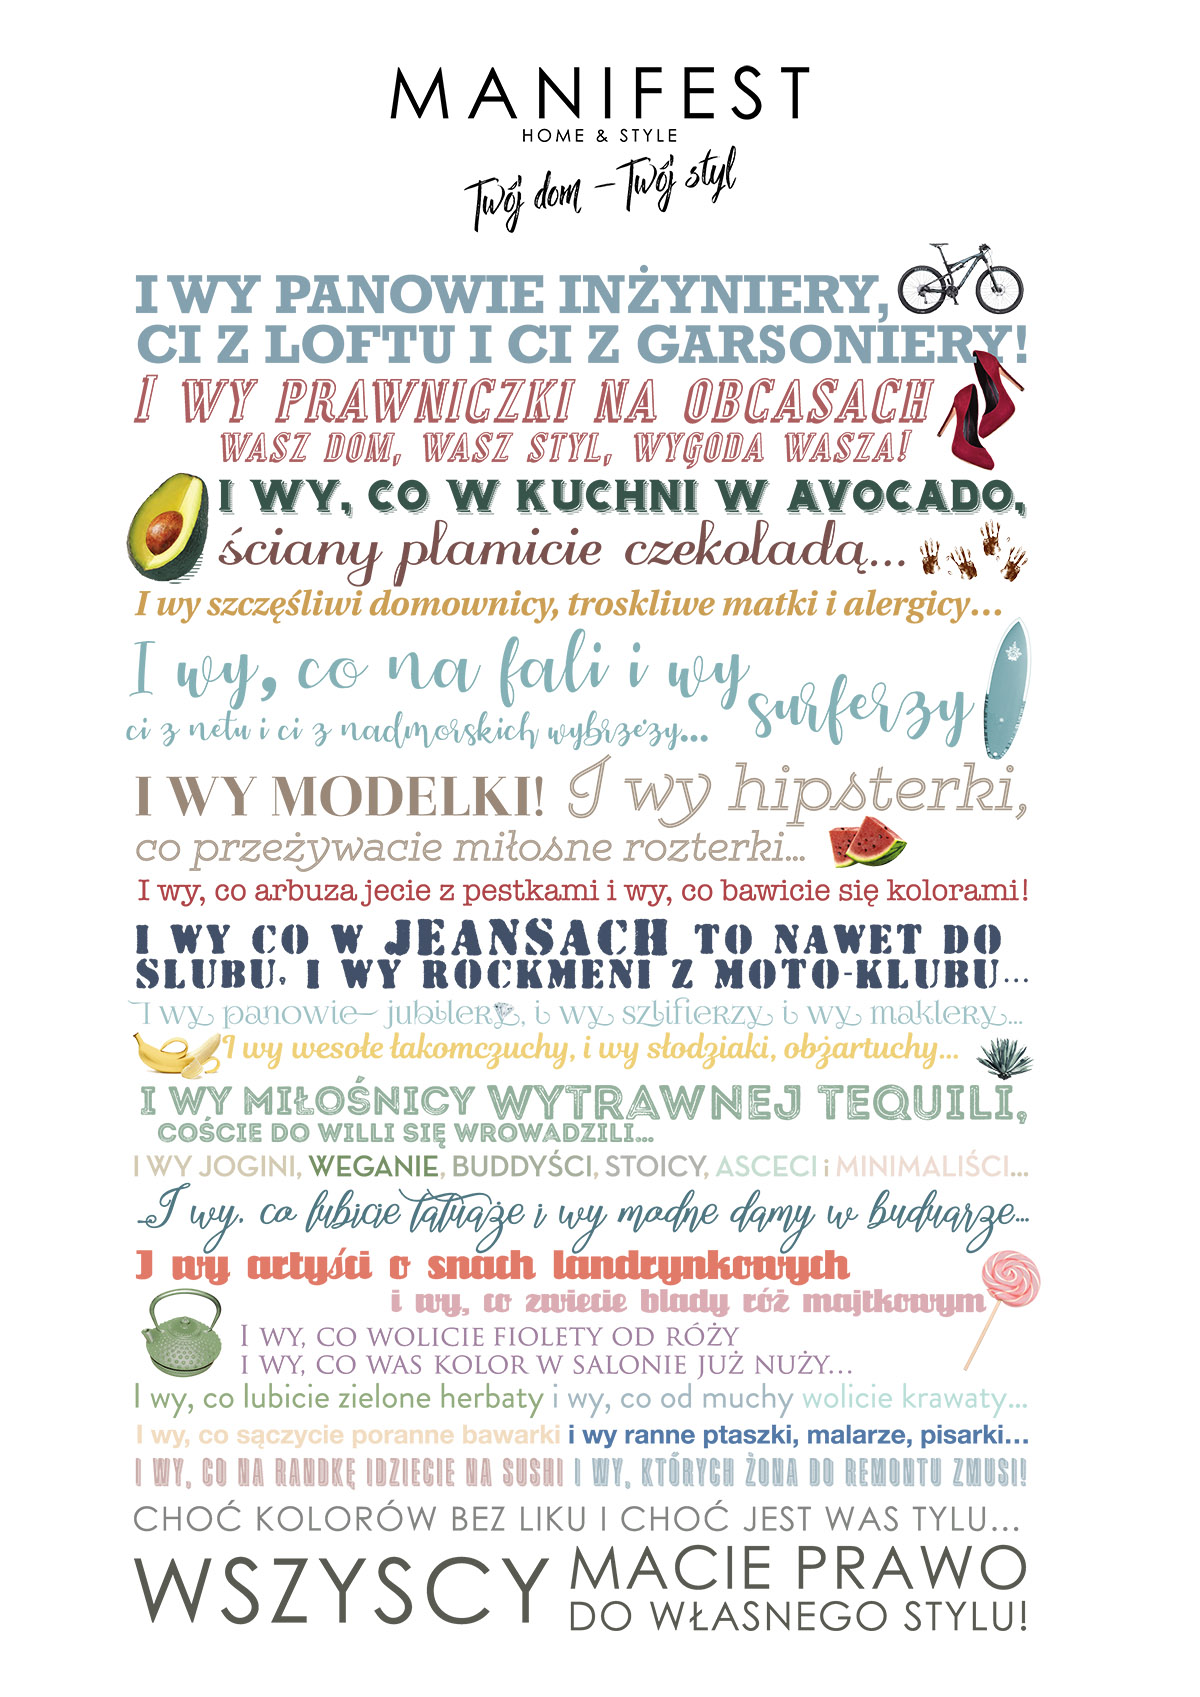 MANIFEST
HOME & STYLE
Twój dom – Twój styl
I WY PANOWIE INŻYNIERY,
CI Z LOFTU I CI Z GARSONIERY!
I WY PRAWNICZKI NA OBCASACH
WASZ DOM, WASZ STYL, WYGODA WASZA!
I WY, CO W KUCHNI W AVOCADO,
ściany plamicie czekoladą...
I wy szczęśliwi domownicy, troskliwe matki i alergicy...
I wy, co na fali i wy surferzy
ci z netu i ci z nadmorskich wybrzeży...
I WY MODELKI! I wy hipsterki,
co przeżywacie miłosne rozterki...
I wy, co arbuza jecie z pestkami i wy, co bawicie się kolorami!
I WY CO W JEANSACH TO NAWET DO
SLUBU, I WY ROCKMENI Z MOTO-KLUBU...
I wy panowie jubilery, i wy szlifierzy i wy maklery...
I wy wesołe łakomczuchy, i wy słodziaki, obżartuchy...
I WY MIŁOŚNICY WYTRAWNEJ TEQUILI,
COŚCIE DO WILLI SIĘ WROWADZILI...
I WY JOGINI, WEGANIE, BUDDYŚCI, STOICY, ASCECI i MINIMALIŚCI...
I wy, co lubicie tatuaże i wy modne damy w buduarze...
I wy artyści o snach landrynkowych
i wy, co zwiecie blady róż majtkowym
I WY, CO WOLICIE FIOLETY OD RÓŻY
I WY, CO WAS KOLOR W SALONIE JUŻ NUŻY...
I wy, co lubicie zielone herbaty i wy, co od muchy wolicie krawaty...
I wy, co sączycie poranne bawarki i wy ranne ptaszki, malarze, pisarki...
I WY, CO NA RANDKĘ IDZIECIE NA SUSHI I WY, KTÓRYCH ŻONA DO REMONTU ZMUSI!
CHOĆ KOLORÓW BEZ LIKU I CHOĆ JEST WAS TYLU...
WSZYSCY MACIE PRAWO
DO WŁASNEGO STYLU!